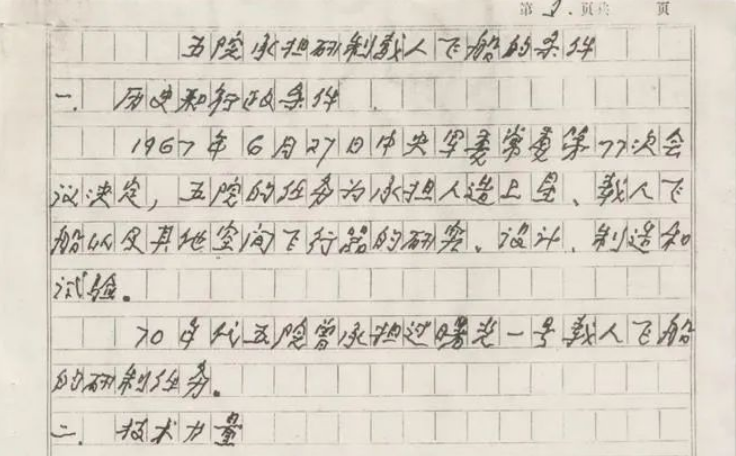 第 2 页共 页
五院承担研制载人飞船的条件
一. 历史和行政条件
1967年6月27日中央军委常委第77次会
议决定, 五院的任务为承担人造卫星、载人飞
船以及其他空间飞行器的研究、设计、制造和
试验.
70年代五院曾承担过曙光一号载人飞船
的研制任务.
二. 技术力量